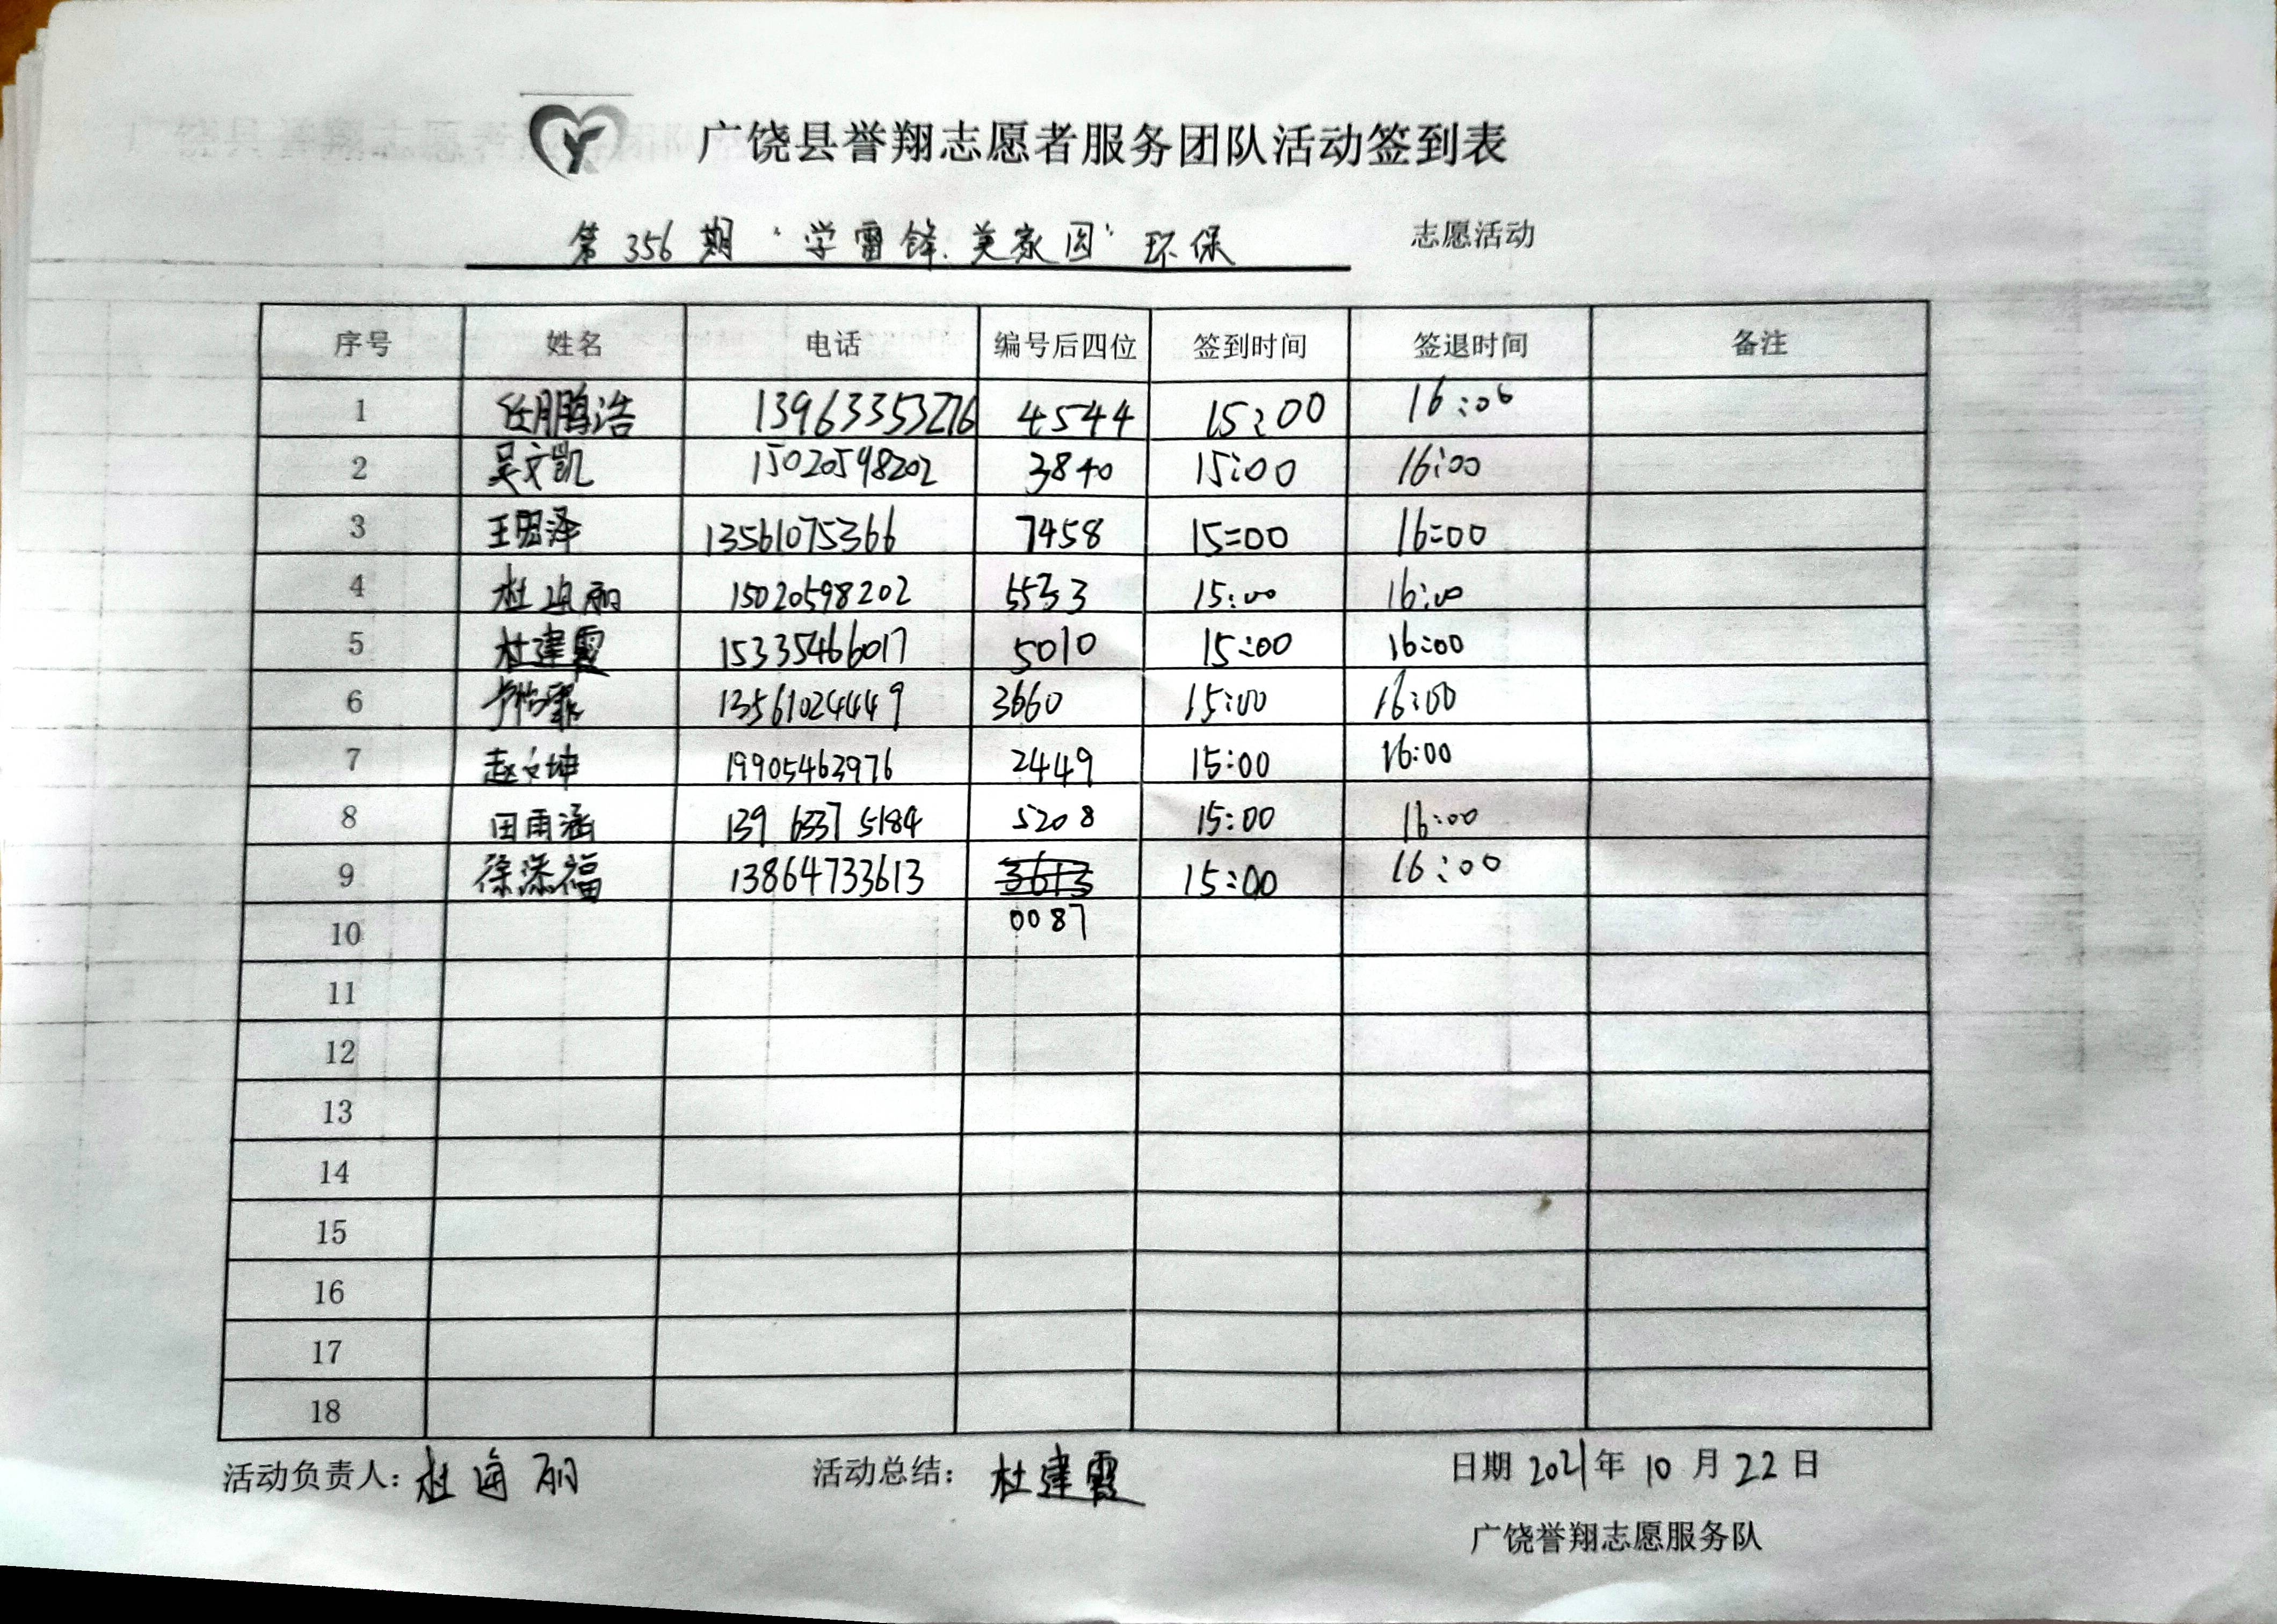 广饶县誉翔志愿者服务团队活动签到表
第356期“学雷锋、美家园”环保 志愿活动
序号 姓名 电话 编号后四位 签到时间 签退时间 备注
1 任鹏浩 13963353276 4544 15:00 16:00
2 吴文凯 15020598202 3840 15:00 16:00
3 王宏泽 13561075366 7458 15:00 16:00
4 杜海丽 15020598202 5533 15:00 16:00
5 杜建霞 15335466017 5010 15:00 16:00
6 13561024449 3660 15:00 16:00
7 赵文坤 19905463976 2449 15:00 16:00
8 田雨涵 139 6337 5184 5208 15:00 16:00
9 徐添福 13864733613 3613 15:00 16:00
10 0087
11
12
13
14
15
16
17
18
活动负责人：杜海丽 活动总结：杜建霞 日期 2021年10月22日
广饶誉翔志愿服务队